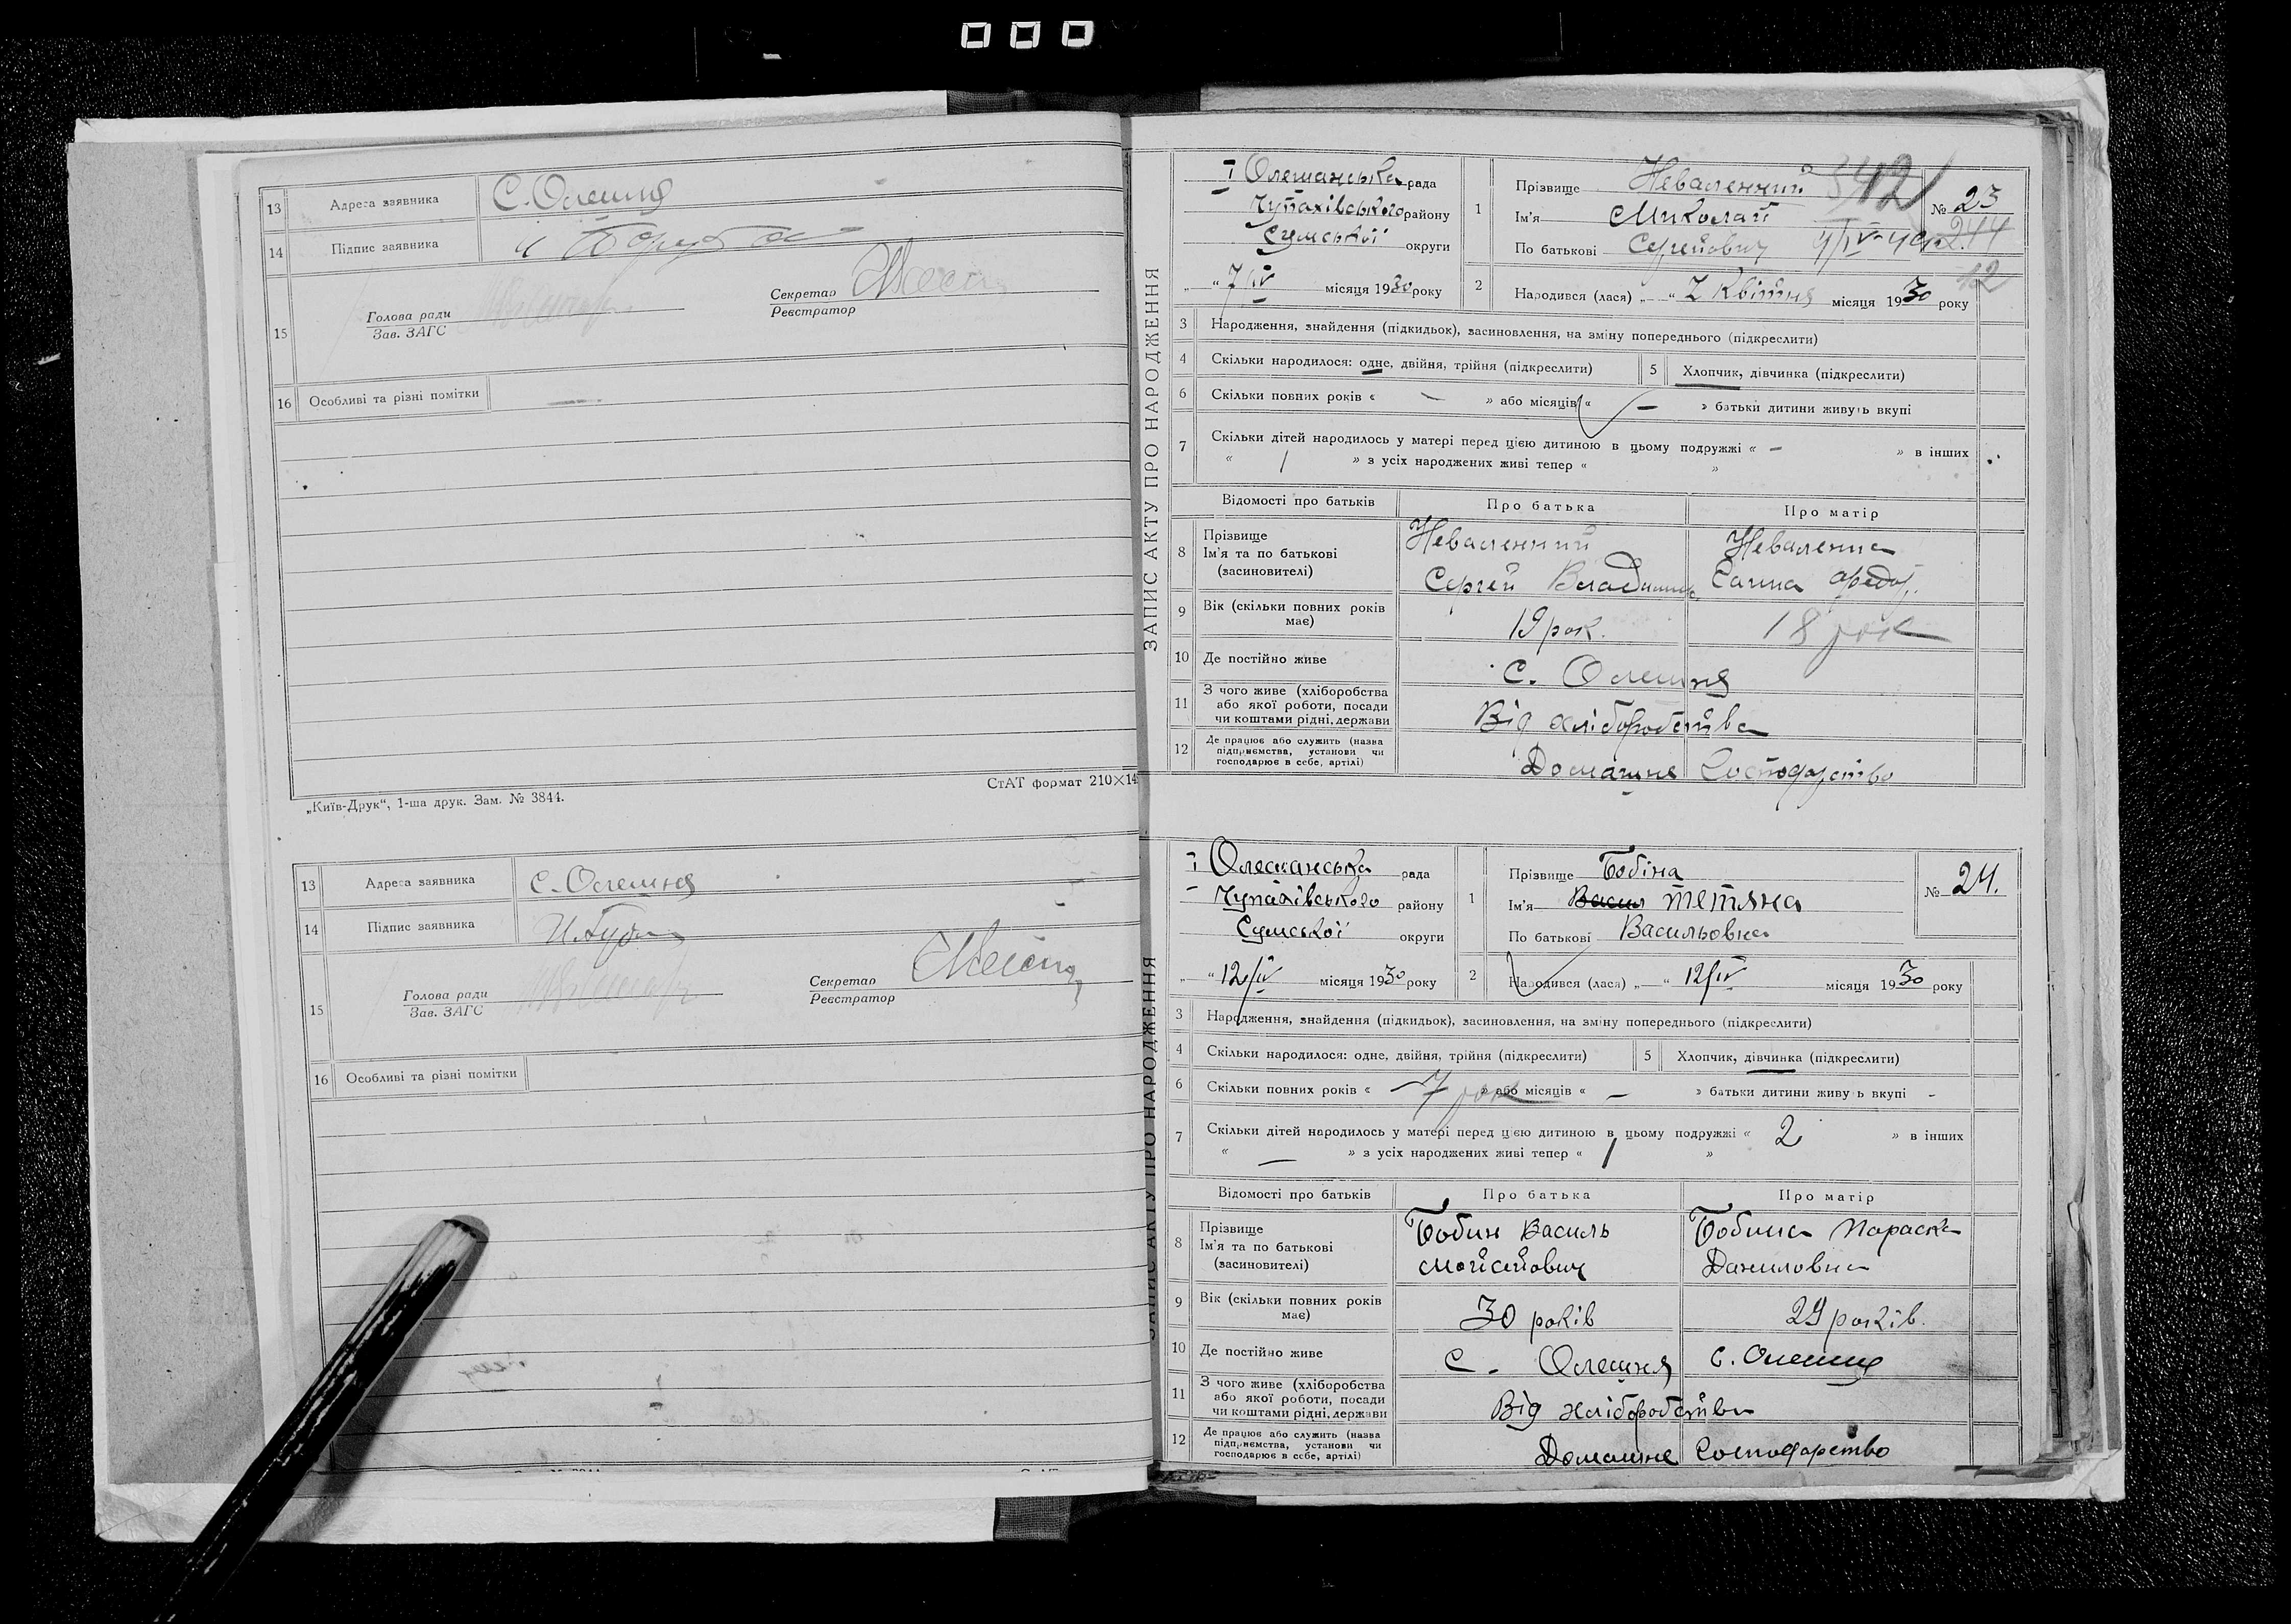 13 Адреса заявника С. Олешня
14 Підпис заявника
15 Голова ради
Зав. ЗАГС
Секретар
Реєстратор
16 Особливі та різні помітки
СтАТ формат 210×14
„Київ-Друк“, 1-ша друк. Зам. № 3844.
13 Адреса заявника С. Олешня
14 Підпис заявника
15 Голова ради
Зав. ЗАГС
Секретар
Реєстратор
16 Особливі та різні помітки
ЗАПИС АКТУ ПРО НАРОДЖЕННЯ
І Олешанська рада
Чупахівського району
Сумської округи
„ “ 7/IV місяця 1930 року
1 Прізвище Неваленний
Ім'я Миколай
По батькові Сергейович
342
№ 23
244
12
2 Народився (лася) „—“ 7 Квітня місяця 1930 року
3 Народження, знайдення (підкидьок), засиновлення, на зміну попереднього (підкреслити)
4 Скільки народилося: одне, двійня, трійня (підкреслити) 5 Хлопчик, дівчинка (підкреслити)
6 Скільки повних років « — » або місяців « — » батьки дитини живуть вкупі
7 Скільки дітей народилось у матері перед цією дитиною в цьому подружжі « — » в інших
« / » з усіх народжених живі тепер « »
Відомості про батьків Про батька Про матір
8 Прізвище
Ім'я та по батькові
(засновителі)
Неваленний
Сергей
Неваленна
Ганна Федо.
9 Вік (скільки повних років має) 19 рок. 18 рок
10 Де постійно живе С. Олешня
11 З чого живе (хліборобства
або якої роботи, посади
чи коштами рідні, держави
Від хліборобства
12 Де працює або служить (назва
підприємства, установи чи
господарює в себе, артілі)
Домашнє Господарство
ЗАПИС АКТУ ПРО НАРОДЖЕННЯ
І Олешанська рада
Чупахівського району
Сумської округи
„ “ 12/IV місяця 1930 року
1 Прізвище Бобіна
Ім'я Васил Тетяна
По батькові Васильовна
№ 24.
2 Народився (лася) „—“ 12/IV місяця 1930 року
3 Народження, знайдення (підкидьок), засиновлення, на зміну попереднього (підкреслити)
4 Скільки народилося: одне, двійня, трійня (підкреслити) 5 Хлопчик, дівчинка (підкреслити)
6 Скільки повних років « —7 рок » або місяців « — » батьки дитини живуть вкупі -
7 Скільки дітей народилось у матері перед цією дитиною в цьому подружжі « 2 » в інших
« — » з усіх народжених живі тепер « 1 »
Відомості про батьків Про батька Про матір
8 Прізвище
Ім'я та по батькові
(засиновителі)
Бобин Василь
Мойсейович
Бобина Параска
Даниловна
9 Вік (скільки повних років має) 30 років 29 років.
10 Де постійно живе С. Олешня с. Олешня
11 З чого живе (хліборобства
або якої роботи, посади
чи коштами рідні, держави
Від хліборобства
12 Де працює або служить (назва
підприємства, установи чи
господарює в себе, артілі)
Домашнє Господарство